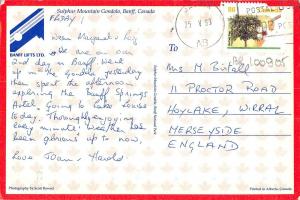 Sulphur Mountain Gondola, Banff, Canada
FRIDAY!
BANFF LIFTS LTD.
Dear Margaret & Roy
We are on our
2nd day in Banff. Went
up in the Gondola yesterday
then spent the afternoon
exploring the Banff Springs
Hotel. Going to Lake Louise
today. Thoroughly enjoying
every minute. Weather has
been glorious up to now.
Love Joan & Harold
Photography by Scott Rowed
To
25 V 93
AB
POSTAL
86
100905
Mrs M Birtall
11 PROCTOR ROAD
HOYLAKE, WIRRAL
MERSEYSIDE
ENGLAND
Printed in Alberta, Canada